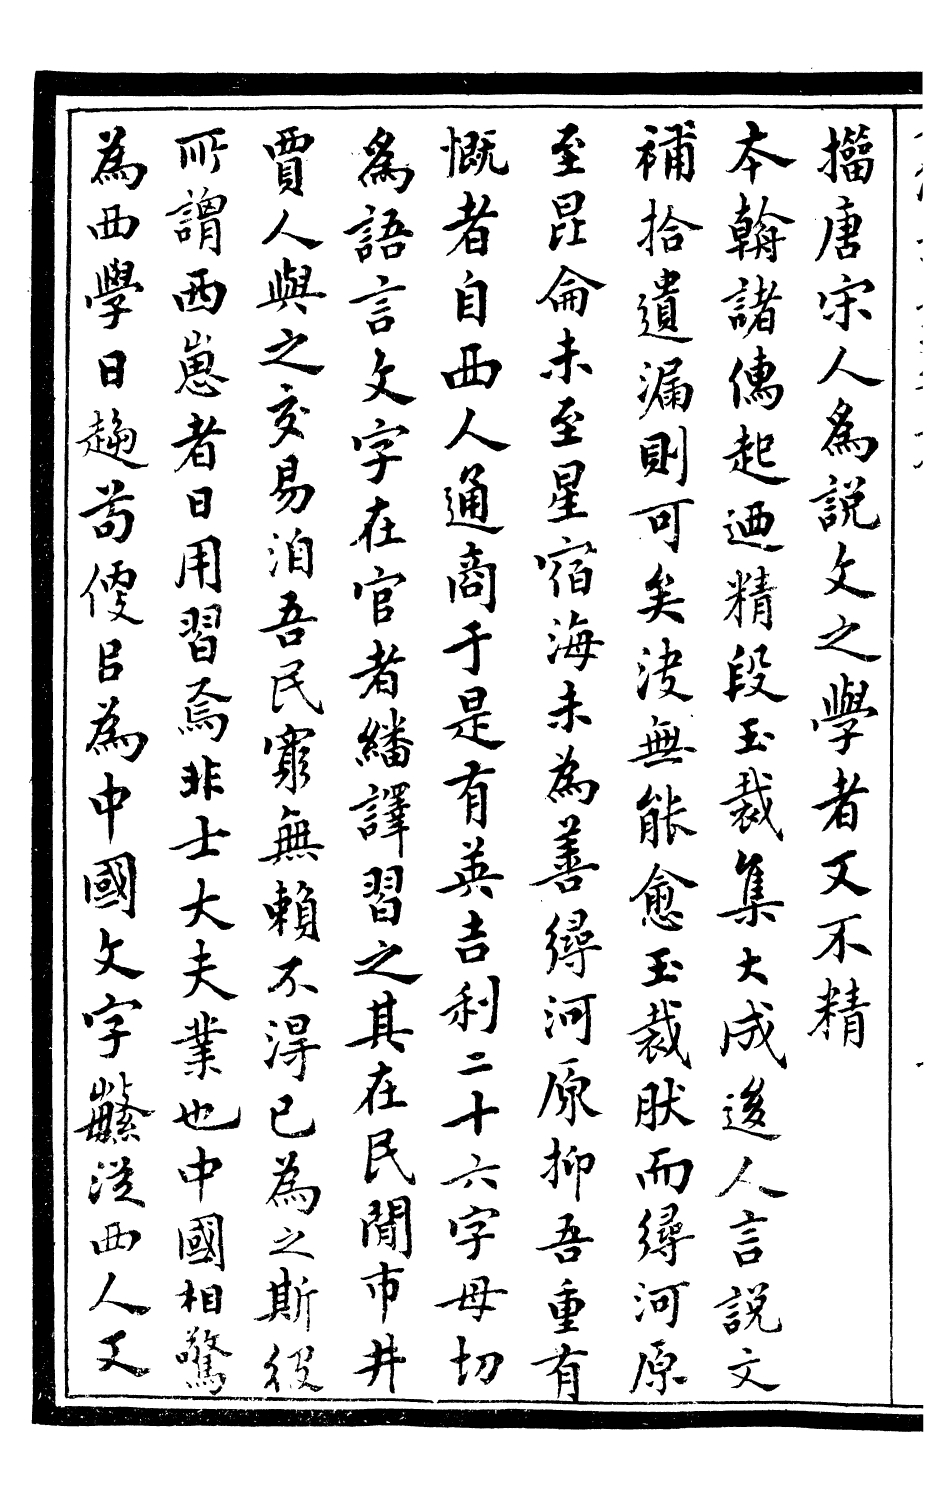 擂唐宋人為說文之學者又不精
本翰諸傳起迺精段玉裁集大成後人言說文
補拾遺漏則可矣決無能愈玉裁肰而尋河原
至昆侖未至星宿海未為善尋河原抑吾重有
慨者自西人通商于是有英吉利二十六字母切
為語言文字在官者繙譯習之其在民間市井
賈人與之交易洎吾民窮無賴不得已為之斯役
所謂西崽者日用習焉非士大夫業也中國相驚
為西學日趨苟偄㠯為中國文字蘩從西人又